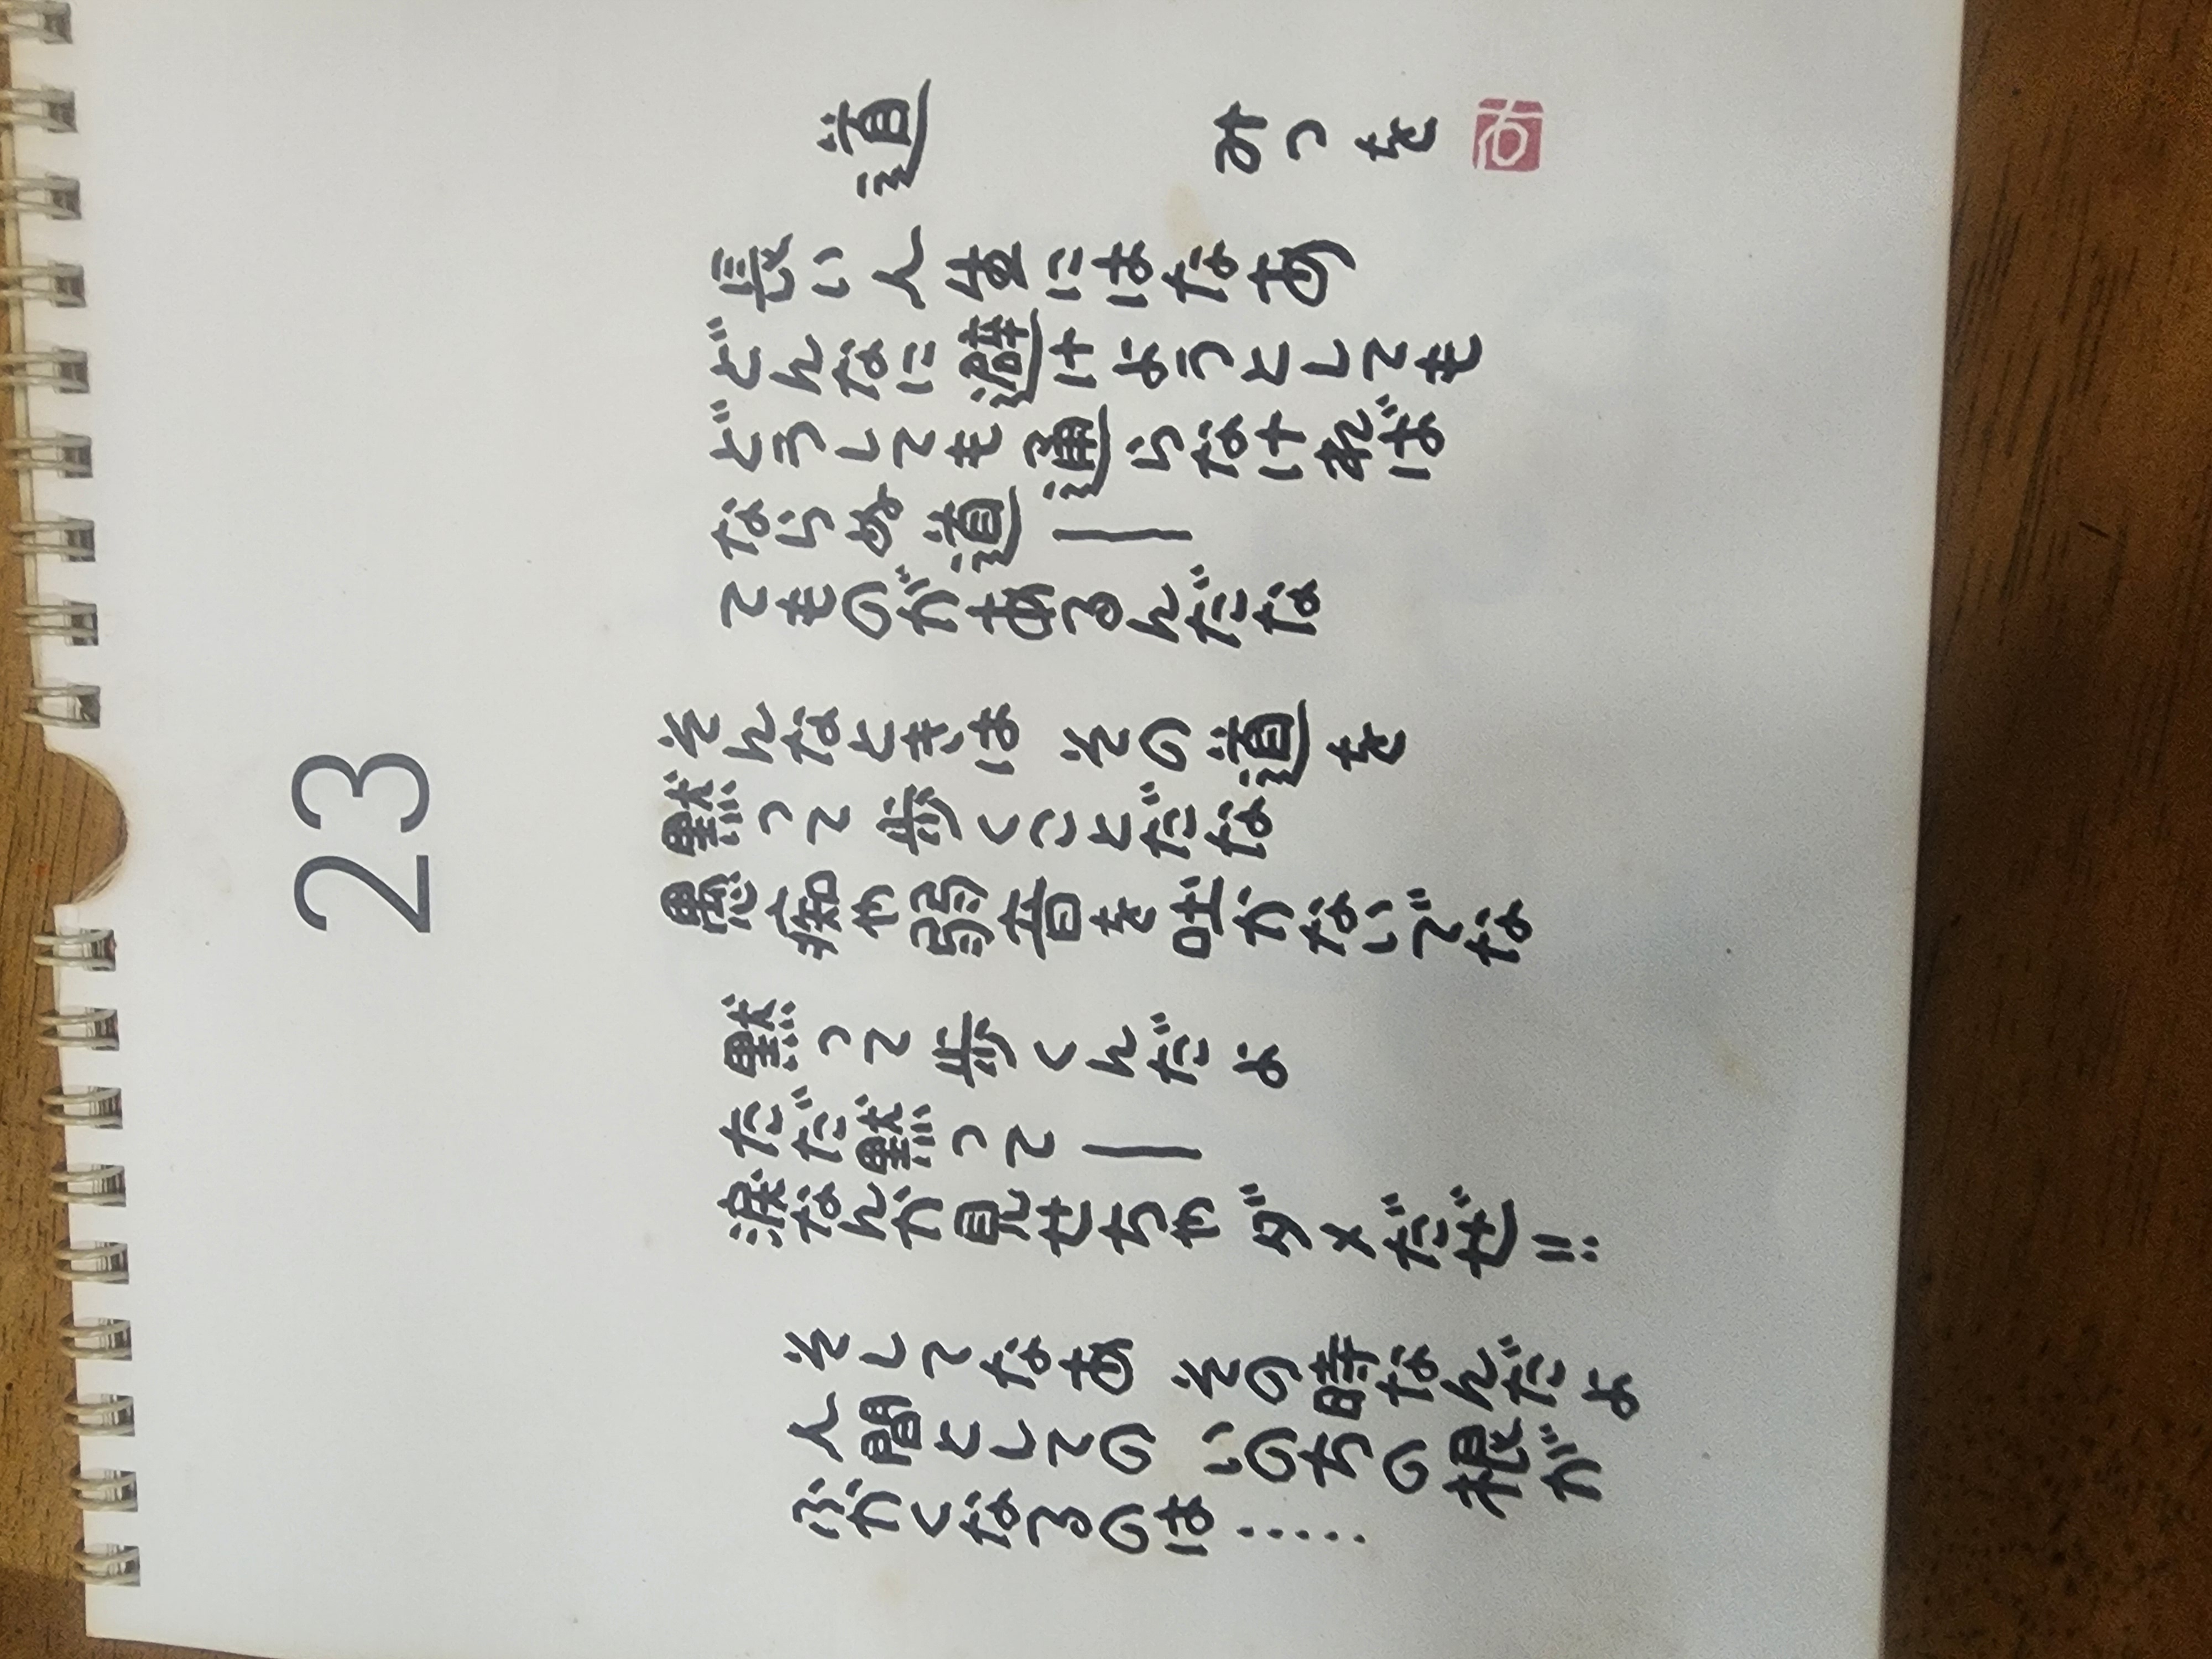 23
道
みつを
長い人生にはなあ
どんなに避けようとしても
どうしても通らなければ
ならぬ道―
てものがあるんだな
そんなときは その道を
黙って歩くことだな
愚痴や弱音を吐かないでな
黙って歩くんだよ
ただ黙って―
涙なんか見せちゃダメだぜ!!
そしてなあ その時なんだよ
人間としての いのちの根が
ふかくなるのは……